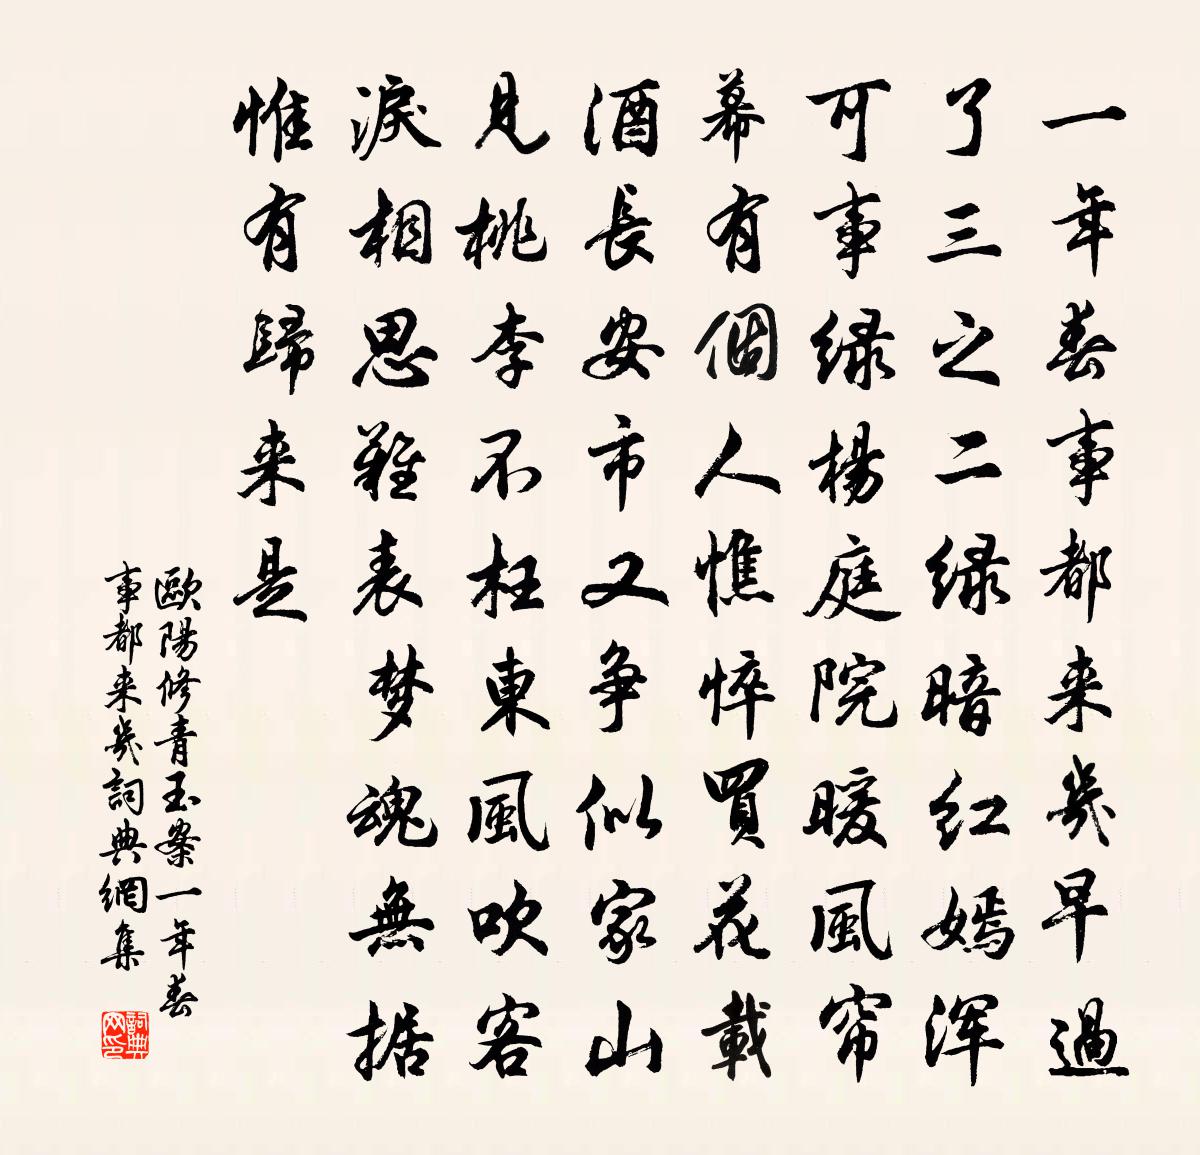 一年春事都来幾早過
了三之二緑暗红嫣浑
可事緑楊庭院暖風帘
幕有個人憔悴買花載
酒長安市又争似家山
見桃李不枉東風吹客
淚相思難表梦魂無据
惟有歸来是
歐陽修青玉案一年春
事都来幾詞典網集
詞典网印